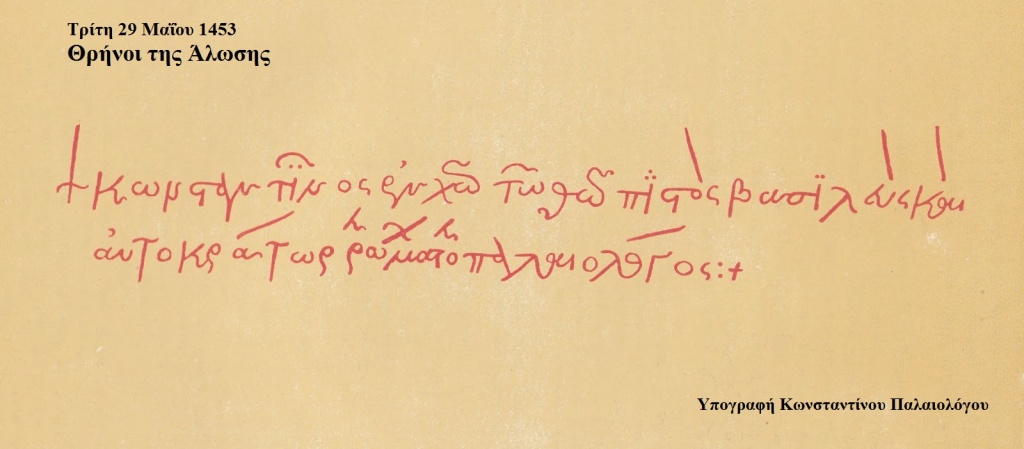 Τρίτη 29 Μαΐου 1453
Θρήνοι της Άλωσης
+ κωνσταντῖνος ἐν χω τω θω πιστὸς βασιλεὺς καὶ
αὐτοκράτωρ ῥωμαίων ὁ παλαιολόγος:+
Υπογραφή Κωνσταντίνου Παλαιολόγου